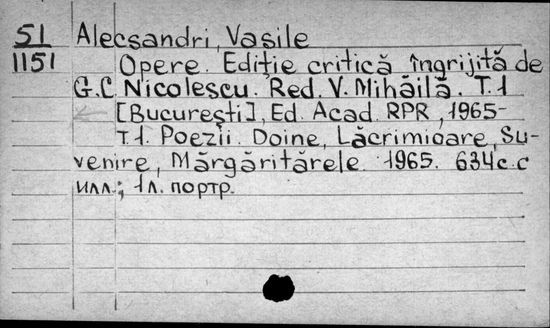 51 Alecsandri, Vasile
1151 Opere. Ediţie critică îngrijită de
G.C. Nicolescu. Red. V. Mihăilă. T.1
[Bucureşti], Ed. Acad. RPR, 1965-
T.1. Poezii. Doine, Lăcrimioare, Su-
venire, Mărgăritărele. 1965. 634c. с
илл.; 1л. портр.